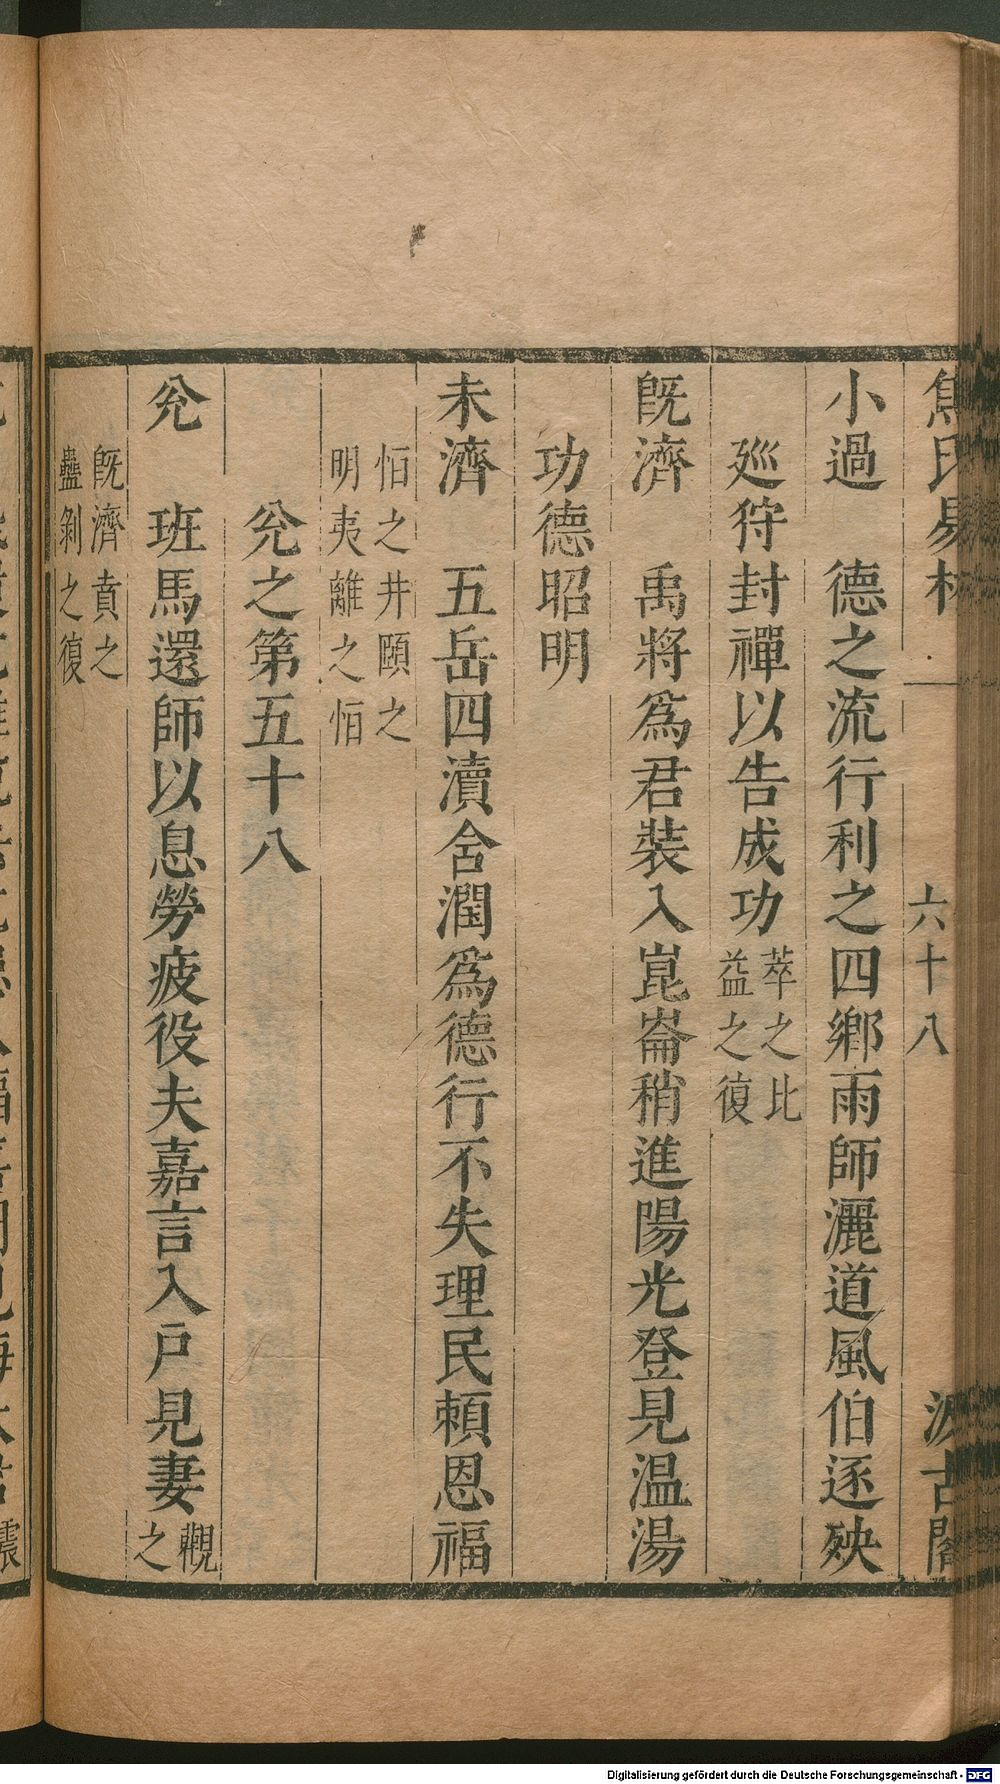 焦氏易林 六十八 汲古閣
小過 德之流行利之四鄉雨師灑道風伯逐殃
巡狩封禪以告成功萃之比
益之復
旣濟 禹將爲君裝入崑崙稍進陽光登見温湯
功德昭明
未濟 五岳四瀆含潤爲德行不失理民賴恩福
恒之井頤之
明夷離之恒
兊之第五十八
兊 班馬還師以息勞疲役夫嘉言入戶見妻觀
之
旣濟賁之
蠱剝之復
Digitalisierung gefördert durch die Deutsche Forschungsgemeinschaft - DFG